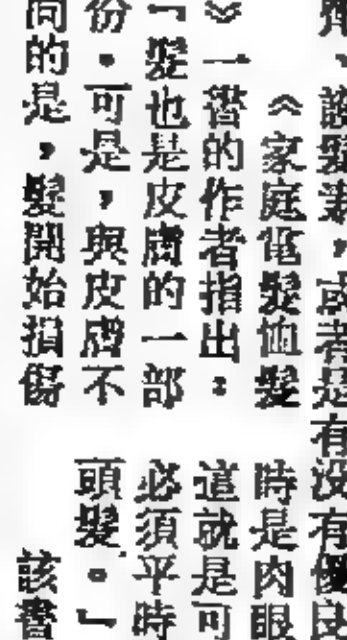 劑、護髮素,或者是有
《家庭電髮恤髮
》一書的作者指出:
『髮也是皮膚的一部
份。可是,與皮膚不
同的是,髮開始損傷
没有優良
時是肉眼
這就是可
必須平時
頭髮。』
該書